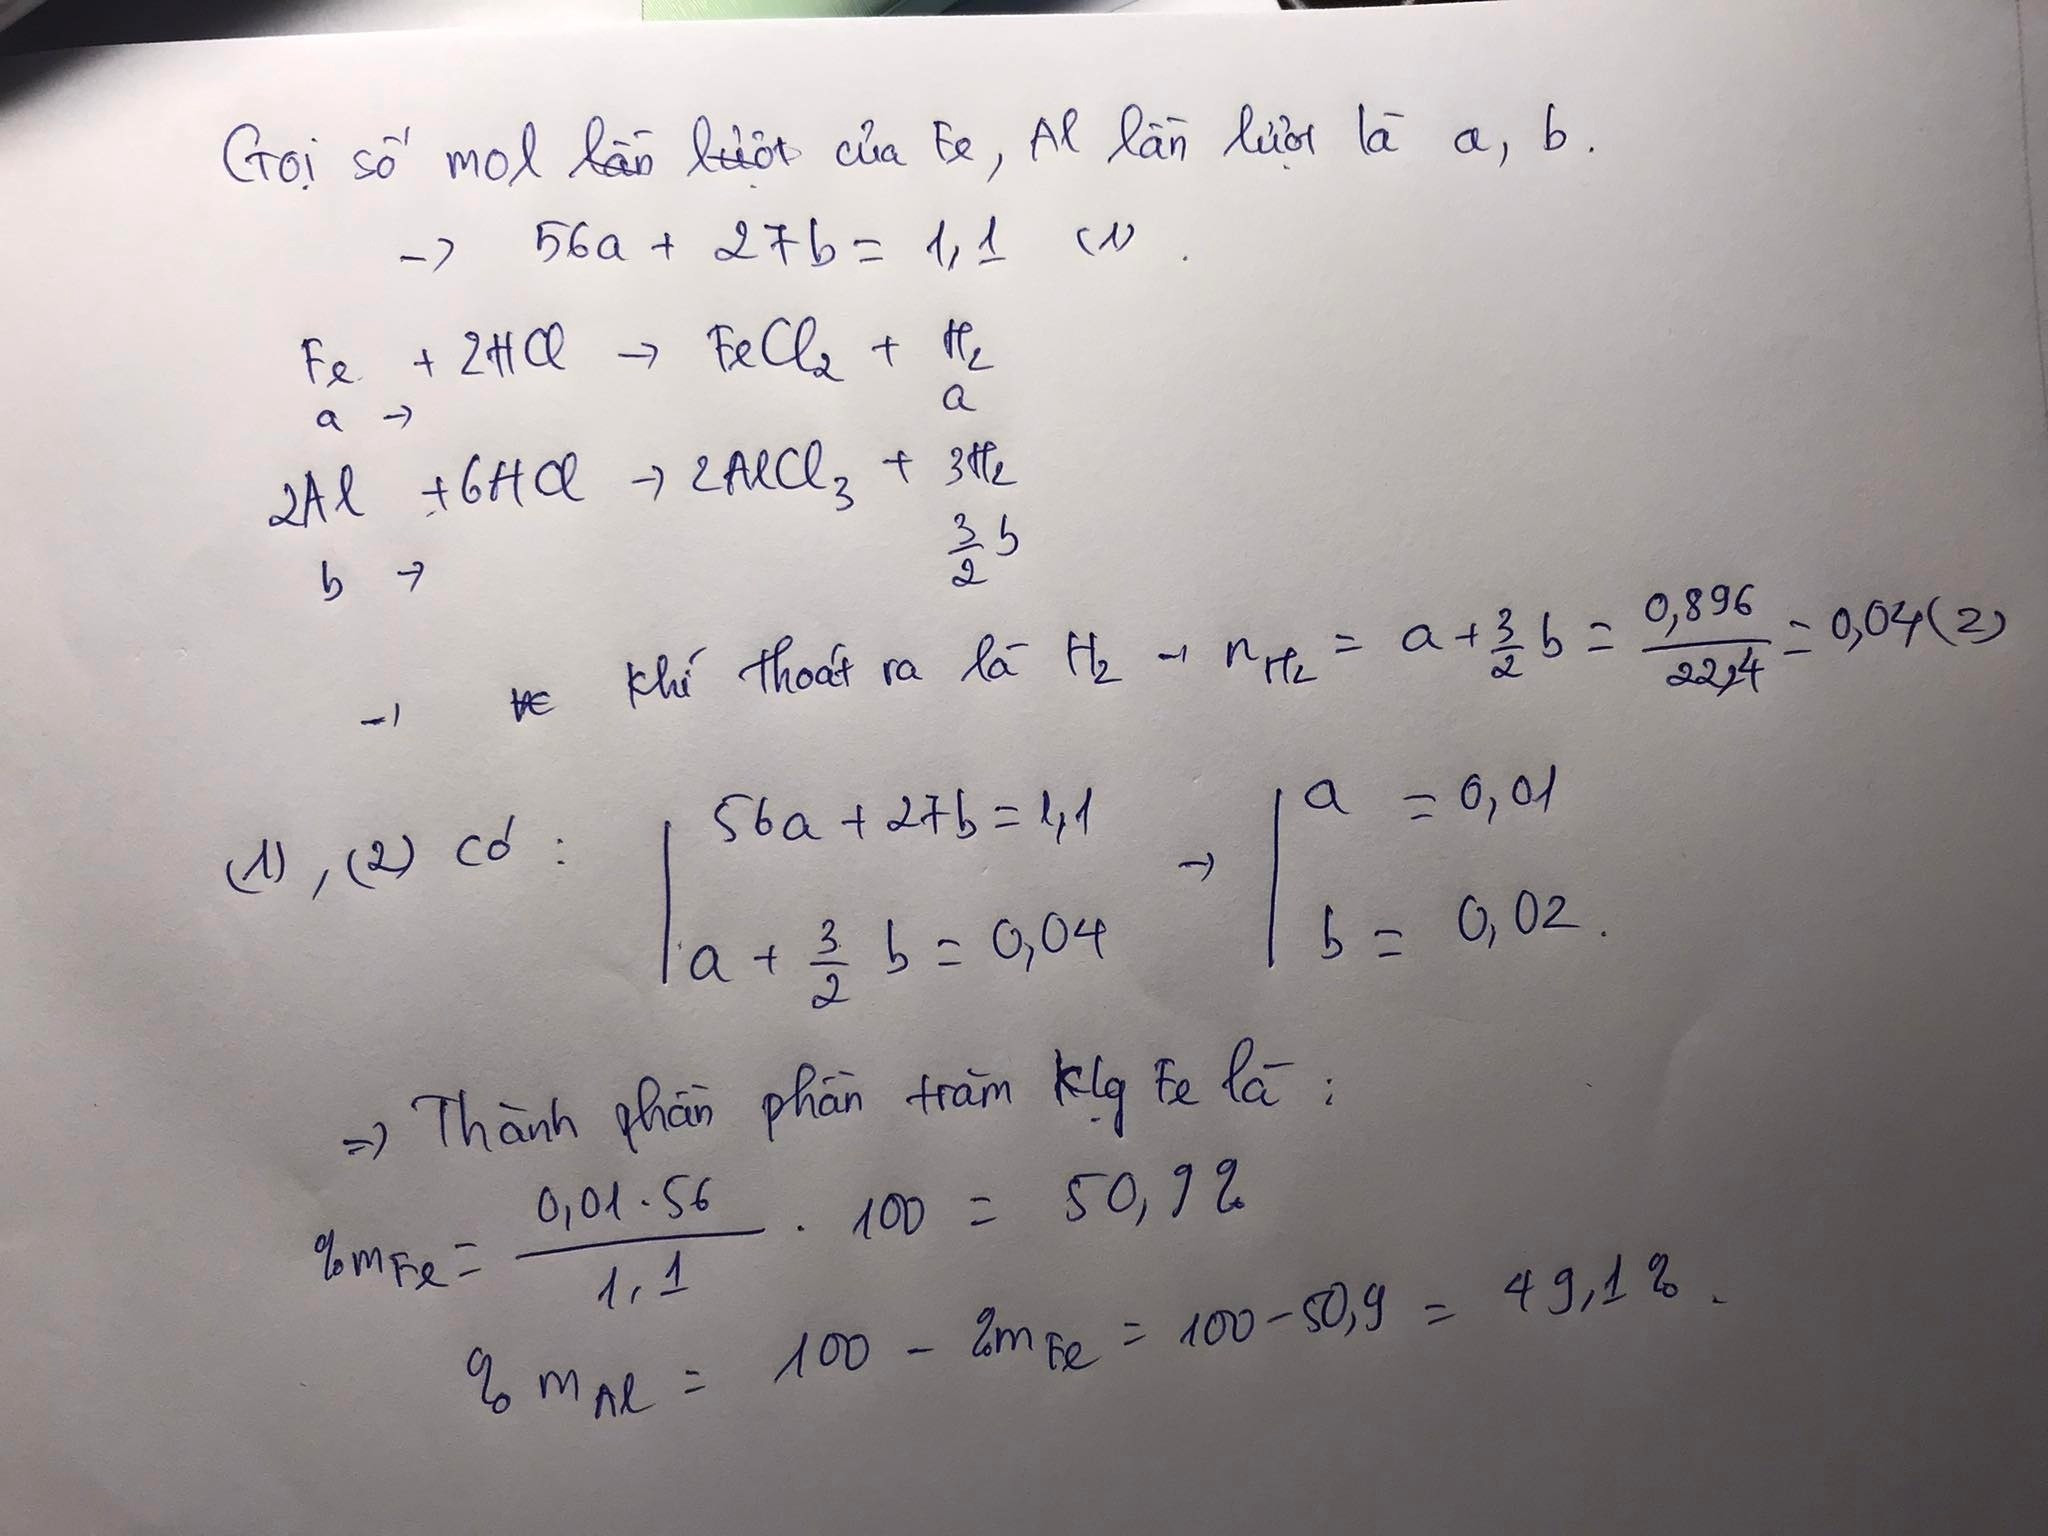 Gọi số mol lần lượt của Fe, Al lần lượt là a, b.
→ 56a + 27b = 1,1 (1).
Fe + 2HCl → FeCl₂ + H₂
a → a
2Al + 6HCl → 2AlCl₃ + 3H₂
b → 3/2 b
→ Khí thoát ra là H₂ → n_H₂ = a + 3/2 b = 0,896/22,4 = 0,04 (2)
(1), (2) có : | 56a + 27b = 1,1 → | a = 0,01
| a + 3/2 b = 0,04 | b = 0,02.
=> Thành phần phần trăm klg Fe là :
%m_Fe = 0,01 . 56 / 1,1 . 100 = 50,9%
%m_Al = 100 - %m_Fe = 100 - 50,9 = 49,1%.